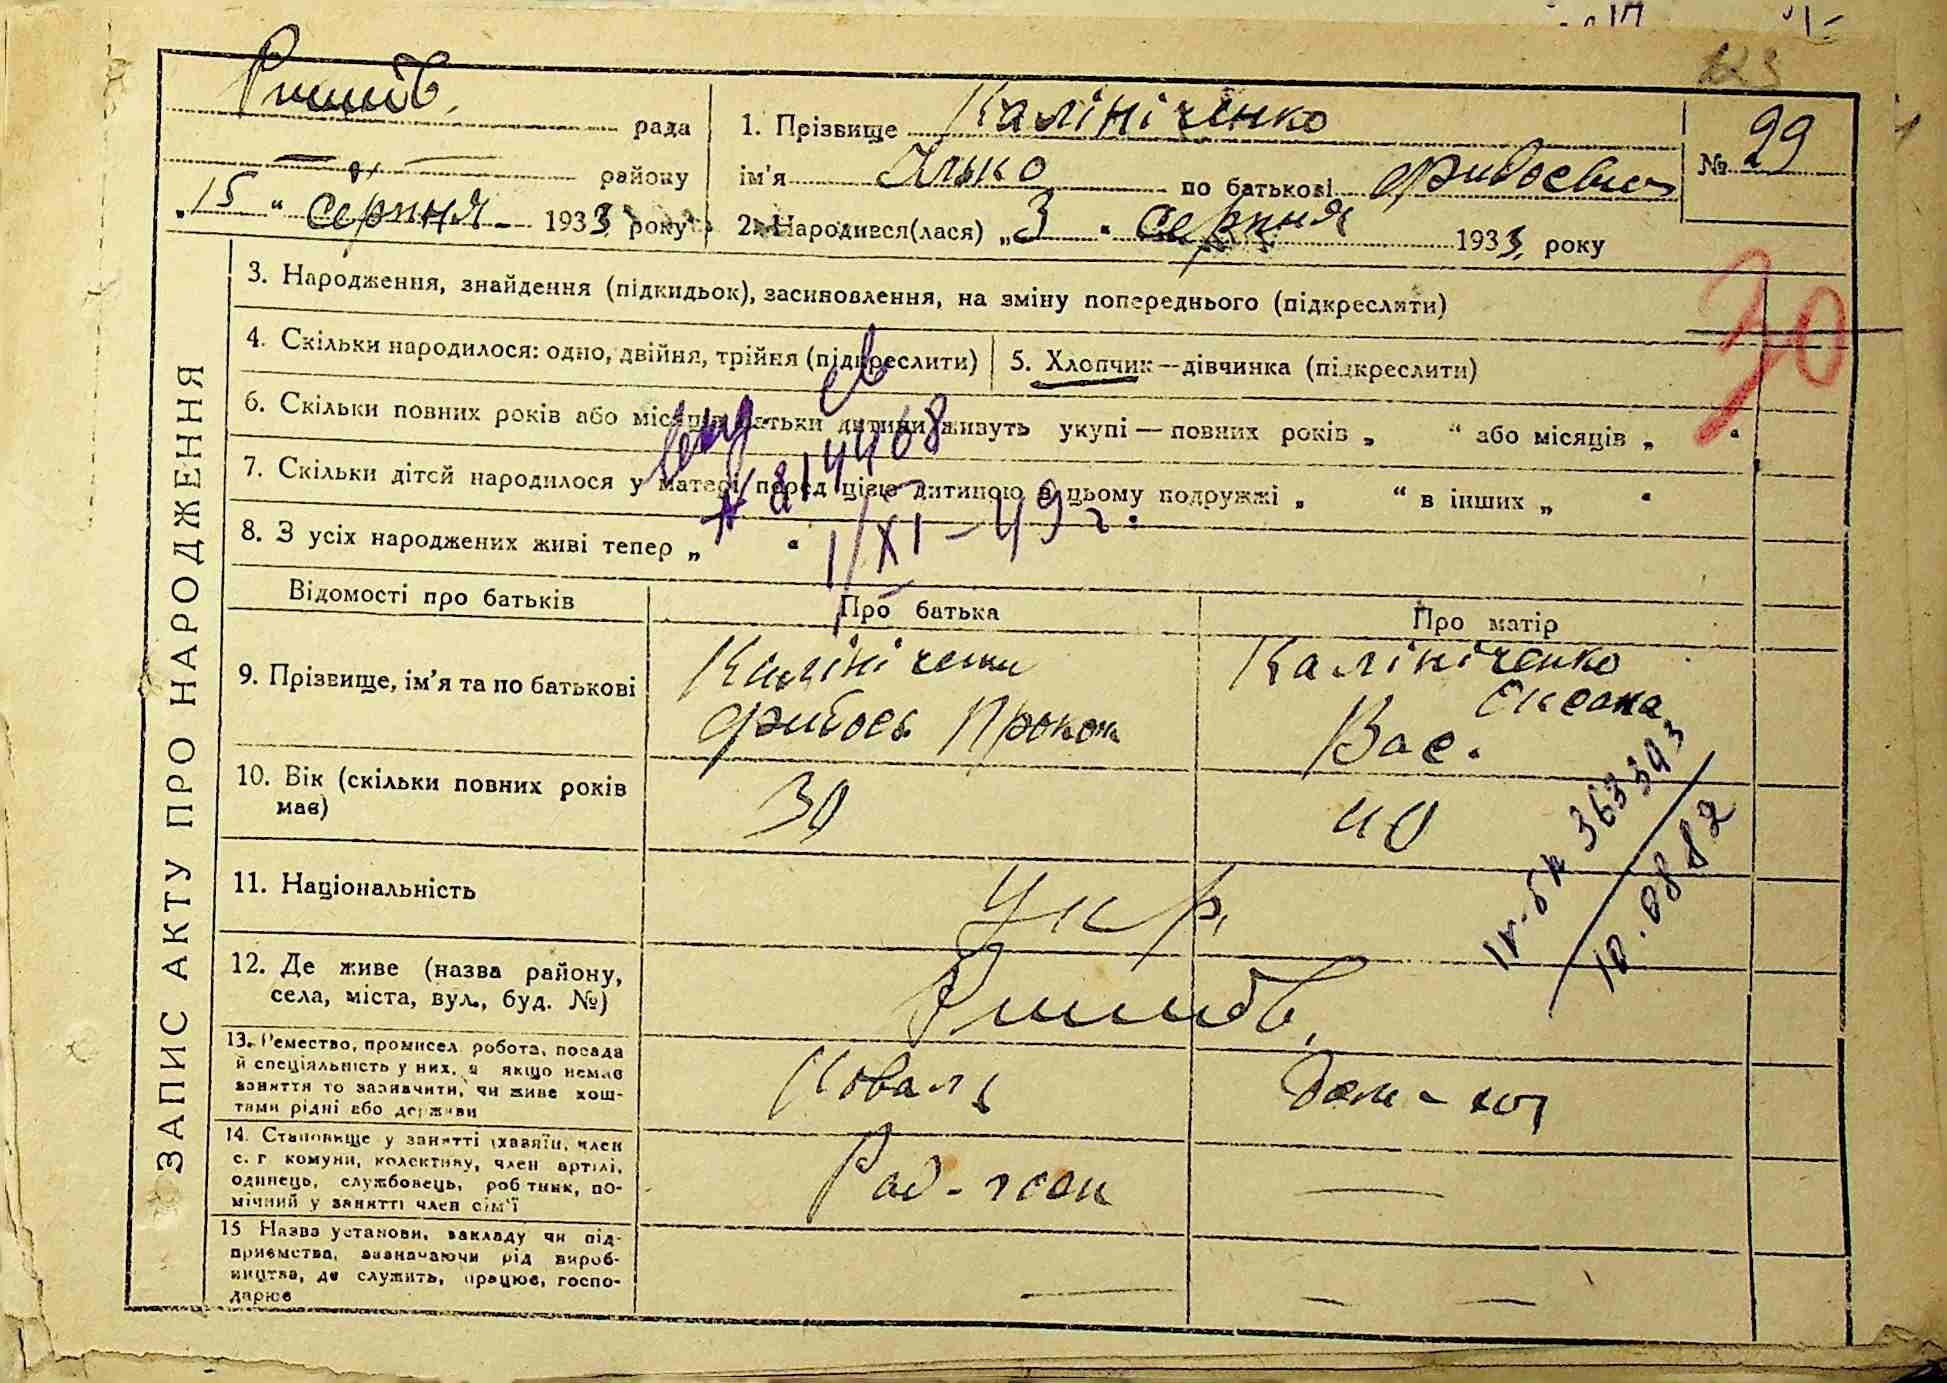 123
рада
1. Прізвище Калініченко
№ 29
району
ім'я Ілько по батькові
„15 “ серпня 1933 року
2. Народився(лася) „3 “ серпня 1933 року
30
ЗАПИС АКТУ ПРО НАРОДЖЕННЯ
3. Народження, знайдення (підкидьок), засиновлення, на зміну попереднього (підкреслити)
4. Скільки народилося: одно, двійня, трійня (підкреслити)
5. Хлопчик — дівчинка (підкреслити)
6. Скільки повних років або місяців батьки дитини живуть укупі — повних років „ “ або місяців „ “
7. Скільки дітей народилося у матері перед цією дитиною в цьому подружжі „ “ в інших „ “
8. З усіх народжених живі тепер „ “
№ 814468
1/XI – 49 г.
Відомості про батьків
Про батька
Про матір
9. Прізвище, ім'я та по батькові
Калініченко
Прокоп
Калініченко
Оксана
Вас.
10. Вік (скільки повних років
має)
30
40
363393
10.08 82
11. Національність
Укр.
12. Де живе (назва району,
села, міста, вул., буд. №)
13. Ремество, промисел робота, посада
й спеціяльність у них, а якщо немає
заняття то зазначити, чи живе кош-
тами рідні або держави
Коваль
14. Становище у занятті (хазяїн, член
с. г. комуни, колективу, член артілі,
одинець, службовець, роб тник, по-
мічний у занятті член сім'ї
15 Назва установи, закладу чи під-
приємства, зазначаючи рід вироб-
ництва, де служить, працює, госпо-
дарює